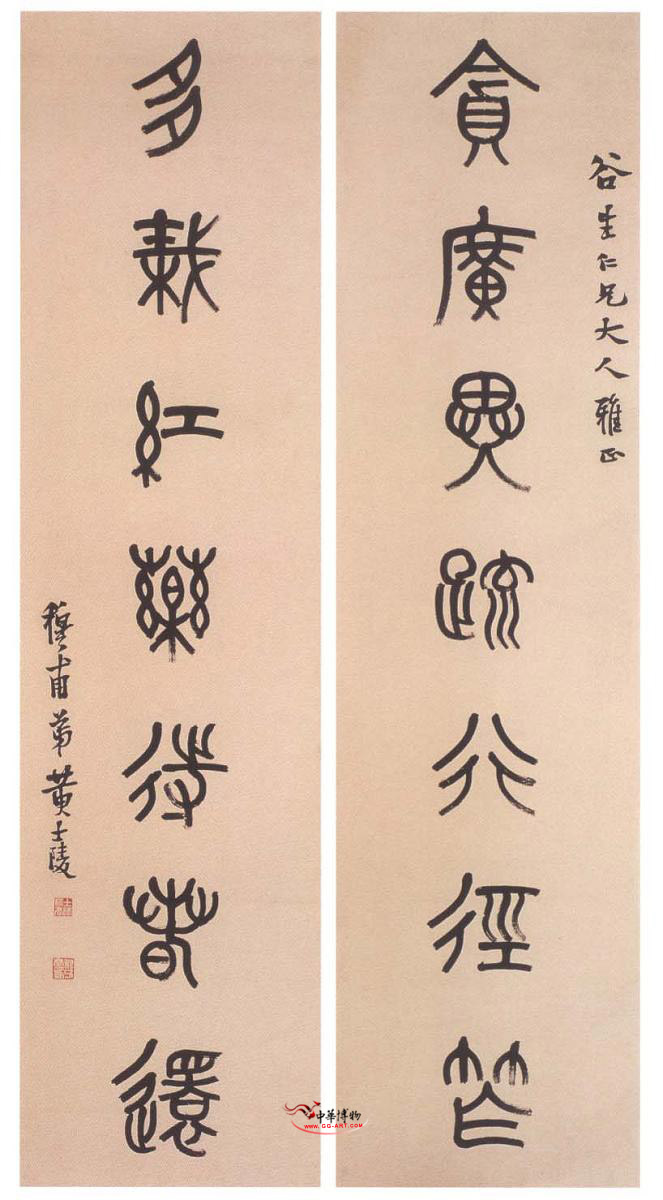 谷生仁兄大人雅正
貪廣異疏行徑笮
多栽紅藥待春還
穆甫弟黃士陵
中華博物
www.GG-ART.COM